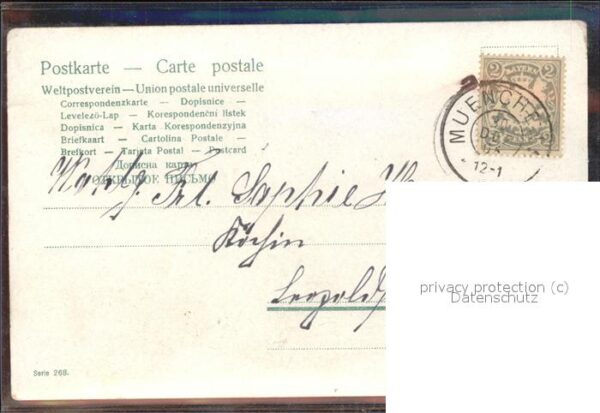 Postkarte — Carte postale
Weltpostverein — Union postale universelle
Correspondenzkarte — Dopisnice —
Levelező-Lap — Korespondenční lístek
Dopisnica — Karta Korespondencyjna
Briefkaart — Cartolina Postale —
Brefkort — Tarjeta Postal — Postcard
Дописна карта
ОТКРЫТОЕ ПИСЬМО
2 BAYERN 2
MUENCHE
12-1
Frl. Sophie
Köchin
Leopold
privacy protection (c)
Datenschutz
Serie 268.